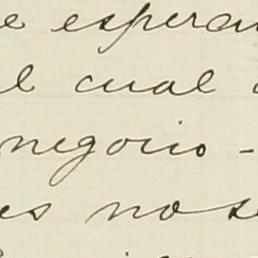 e espera
el cual
negocio -
es nos